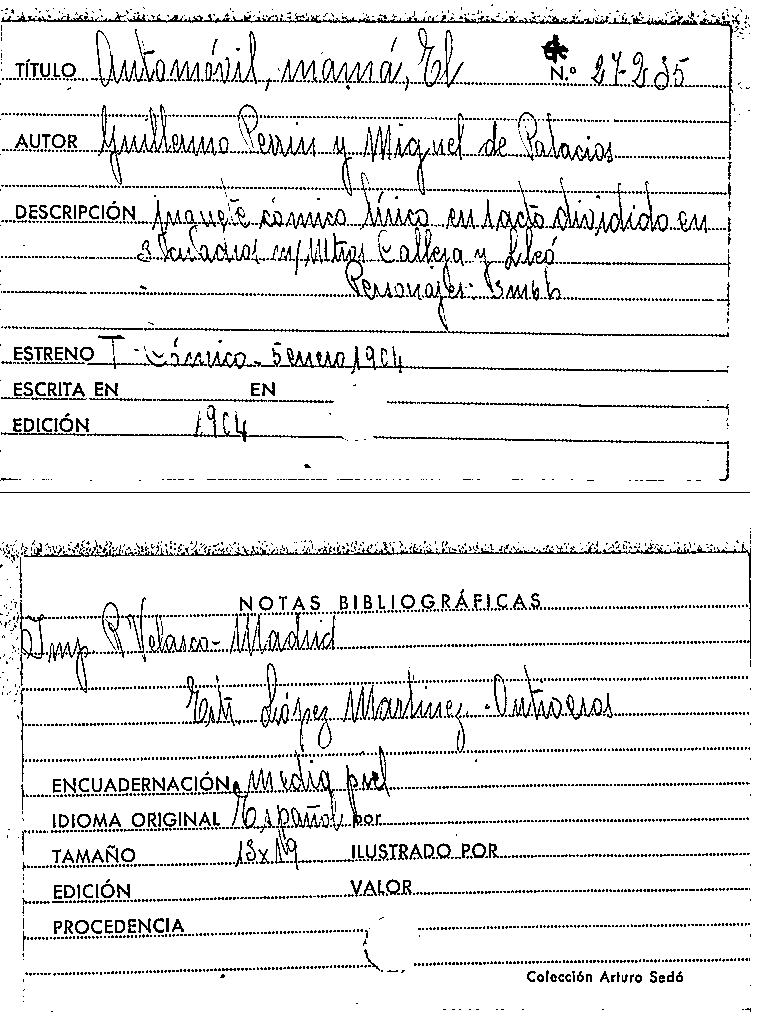 TÍTULO Automóvil, mamá, El N.º 27-235
AUTOR Guillermo Perrin y Miguel de Palacios
DESCRIPCIÓN Juguete cómico lírico en 1 acto dividido en
3 cuadros m/ Mtros Calleja y Lleó
Personajes: 3m 6h
ESTRENO T. Cómico - 5 enero 1904
ESCRITA EN EN
EDICIÓN 1904
NOTAS BIBLIOGRÁFICAS
Imp R Velasco - Madrid
López Martinez -
ENCUADERNACIÓN media piel
IDIOMA ORIGINAL Español por
TAMAÑO 13x19 ILUSTRADO POR
EDICIÓN VALOR
PROCEDENCIA
Colección Arturo Sedó